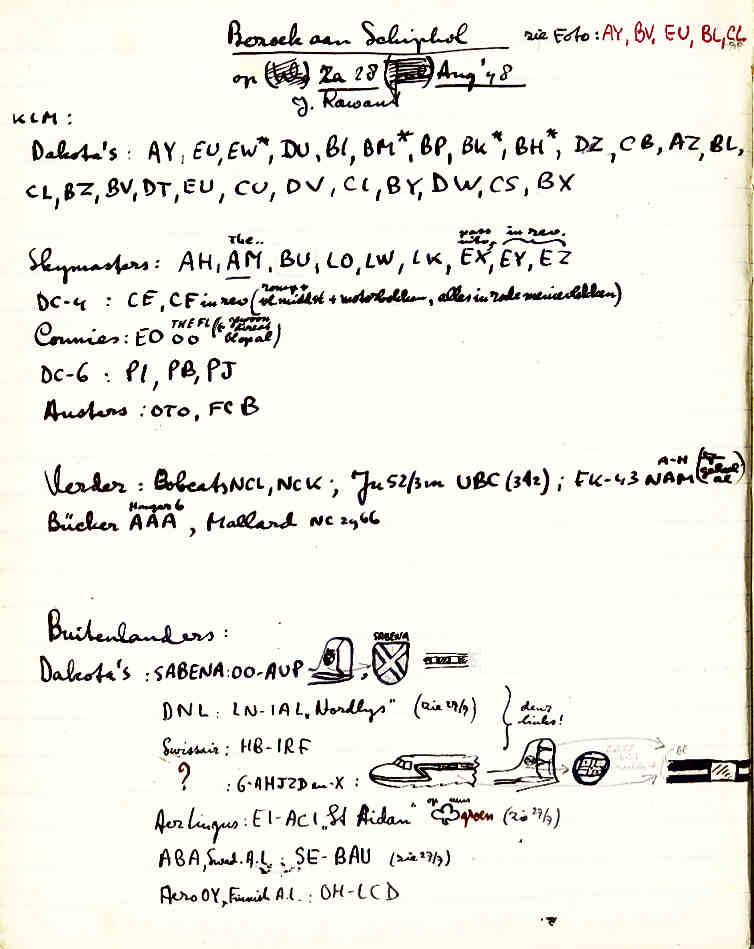 Bezoek aan Schiphol zie Foto: AY, BV, EU, BL, CL
op Za 28 Aug '48
J. Rawant
KLM:
Dakota's: AY, EU, EW*, DU, BI, BM*, BP, BK*, BH*, DZ, CB, AZ, BL,
CL, BZ, BV, DT, EU, CU, DV, CI, BY, DW, CS, BX
The..
in rev.
Skymasters: AH, AM, BU, LO, LW, LK, EX, EY, EZ
DC-4 : CE, CF in rev ( + motorbokken, alles in rode menie
Connies: EO
DC-6 : PI, PB, PJ
Austers : OTO, FCB
A-H
Verder: Bobcats NCL, NCK; Ju 52/3m UBC (342); EK-43 NAM
Hangar 6
Bücker AAA, Mallard NC 2966
Buitenlanders:
SABENA
Dakota's : SABENA: OO-AUP
DNL: LN-IAL "Nordlys" (zie 27/7) deur links!
Swissair: HB-IRF
? : G-AHJZD en -X:
Aer Lingus: EI-ACI "St Aidan" groen (zie 27/7)
ABA, Swed. A.L.: SE-BAU (zie 27/7)
Aero OY, Finnish A.L.: OH-LCD